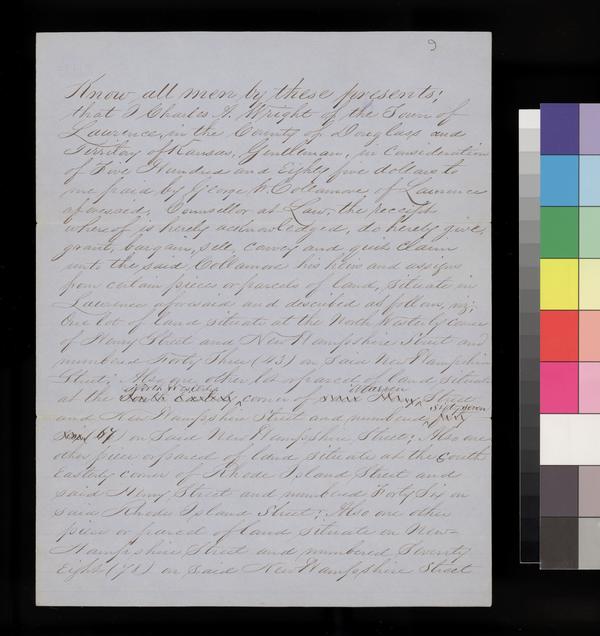 9
Know all men by these presents;
that I Charles A. Wright of the Town of
Lawrence, in the County of Douglass and
Territory of Kansas, Gentleman, in consideration
of Five Hundred and Eighty five dollars to
me paid by George W. Collamore of Lawrence
aforesaid, Counsellor at Law, the receipt
whereof is hereby acknowledged, do hereby give,
grant, bargain, sell, convey and quit claim
unto the said Collamore his heirs and assigns
four certain pieces or parcels of land, situate in
Lawrence aforesaid and described as follows, viz;
One lot of land situate at the North Westerly corner
of Henry Street and New Hampshire Street and
numbered Forty Three (43) on said New Hampshire
Street; Also one other lot or parcel of land situate
North Westerly Warren
at the South corner of Street
Sixty Seven
and New Hampshire Street and numbered
(67) on said New Hampshire Street; Also one
other piece or parcel of land situate at the South
Easterly corner of Rhode Island Street and
said Henry Street and numbered Forty Six on
said Rhode Island Street; Also one other
piece or parcel of land situate on New-
Hampshire Street and numbered Seventy
Eight (78) on said New Hampshire Street